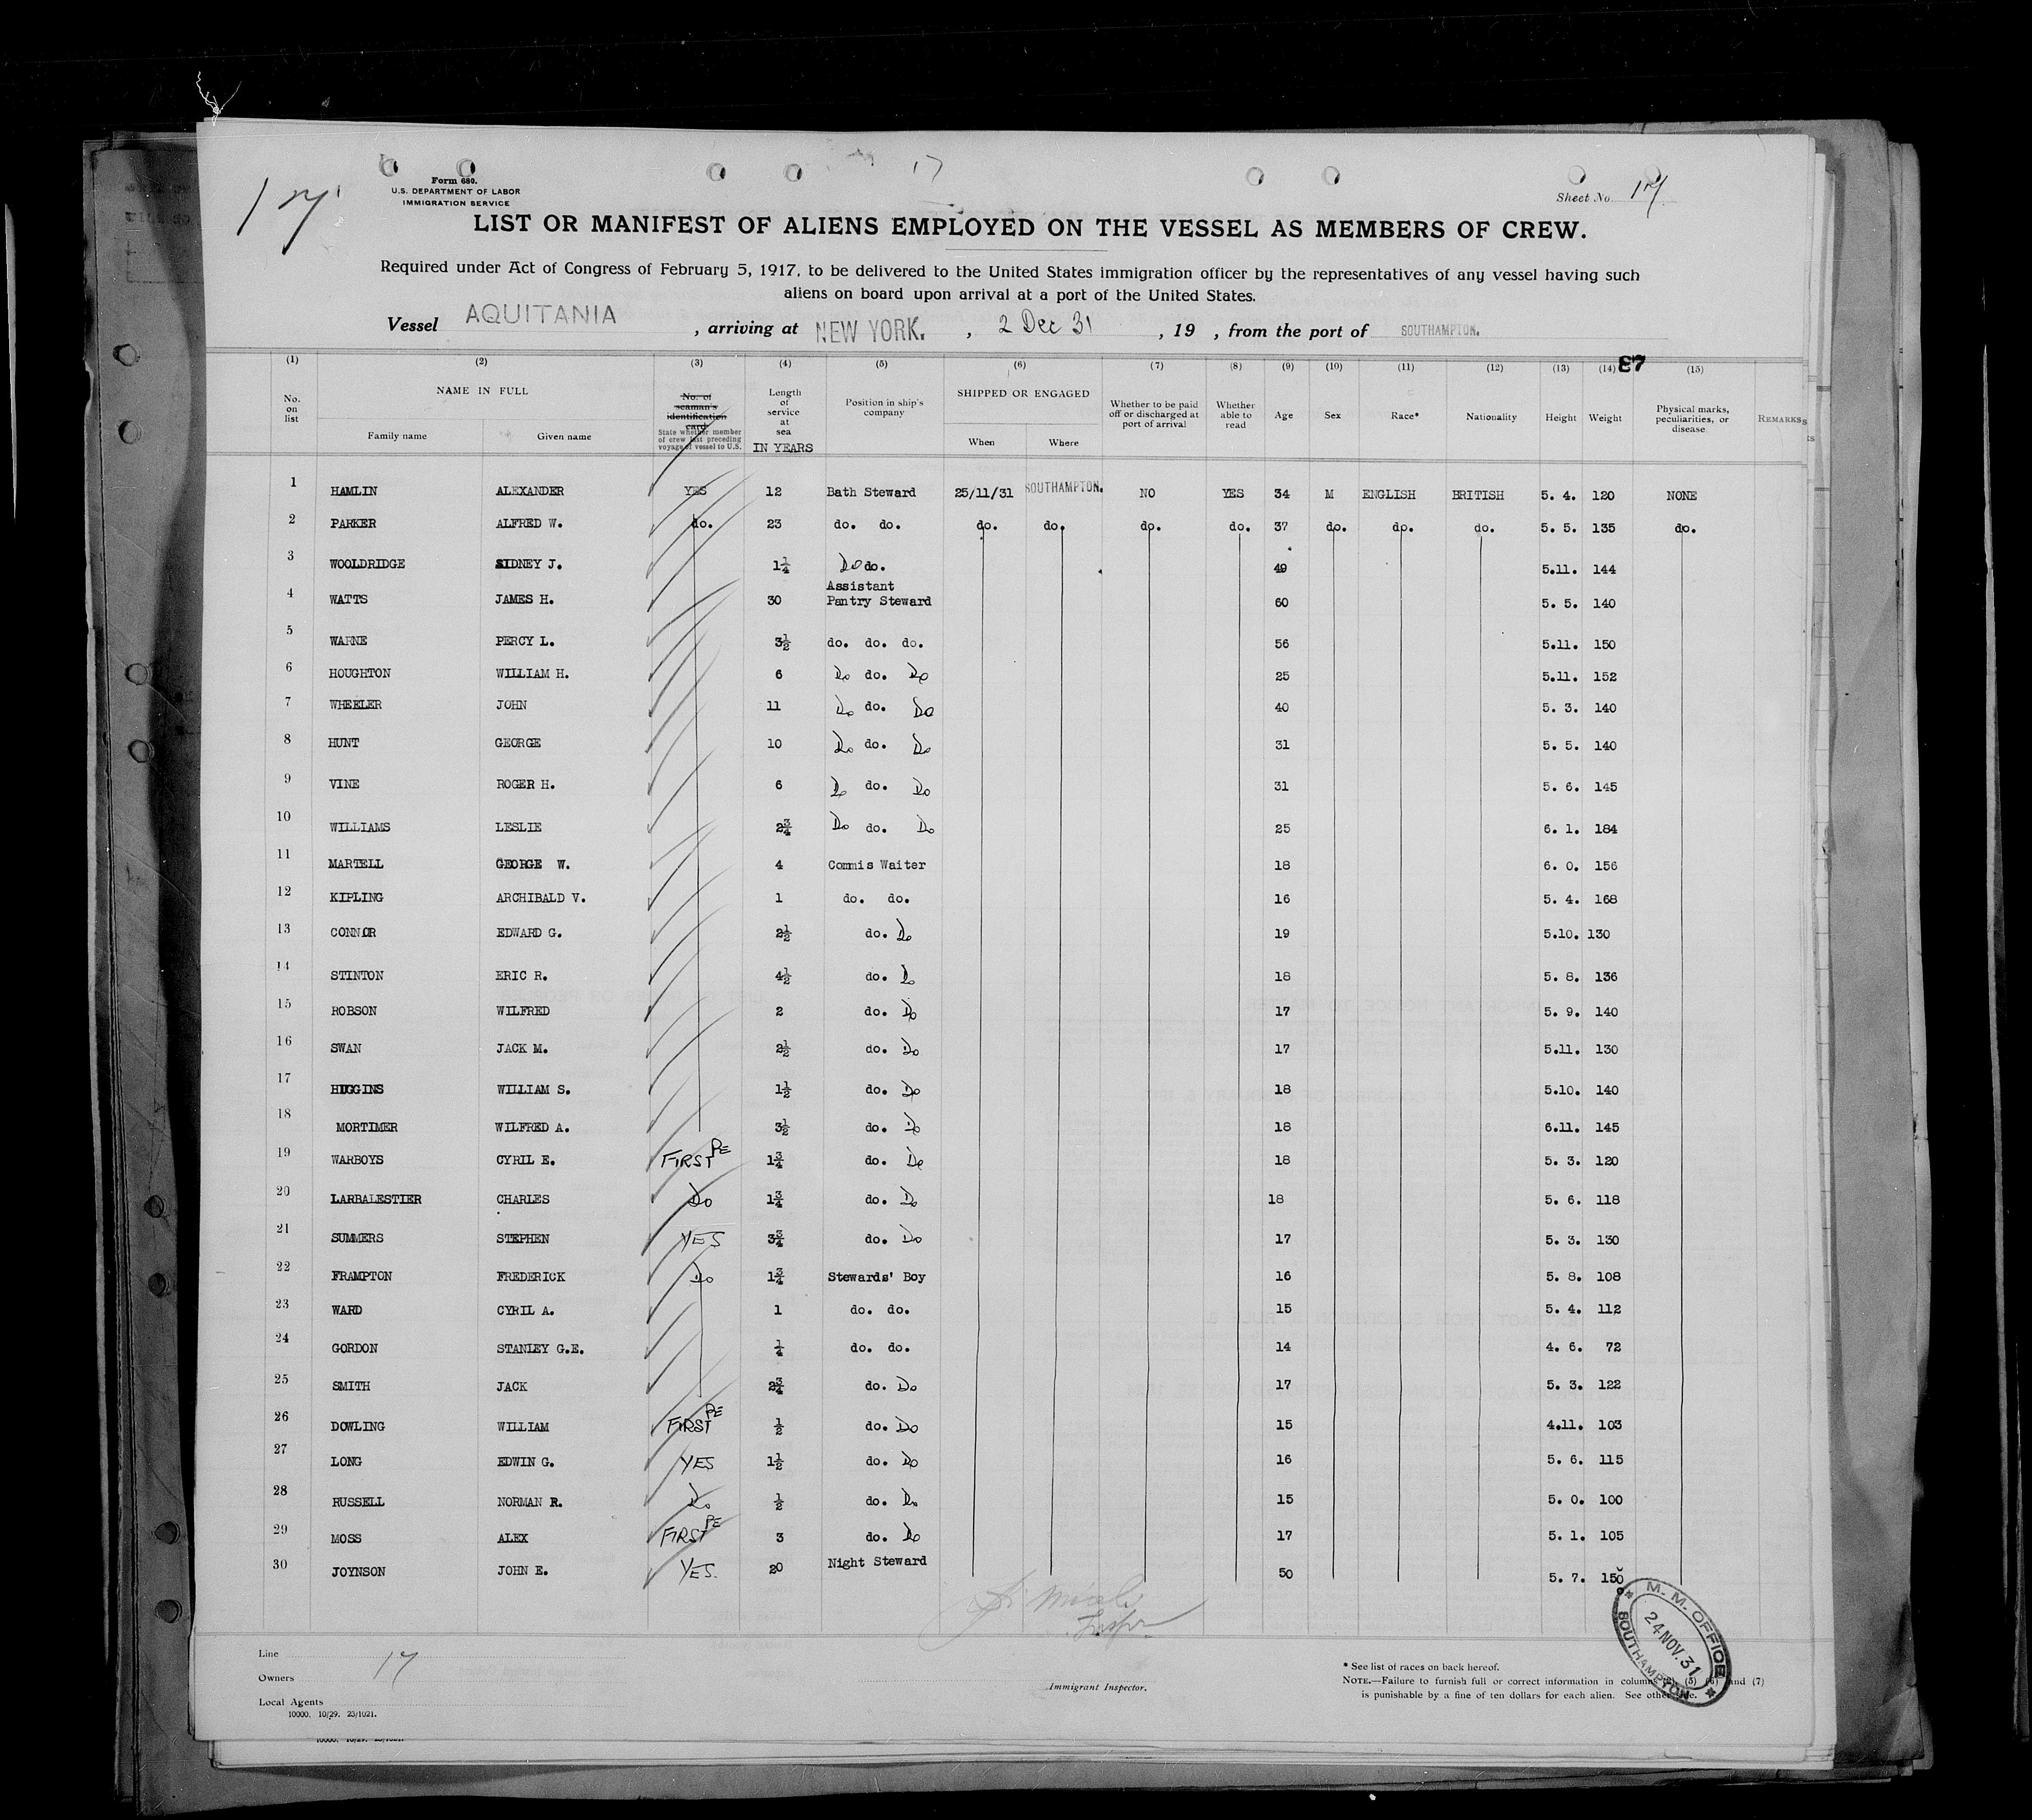 17
17
Form 680.
U.S. DEPARTMENT OF LABOR
IMMIGRATION SERVICE
Sheet No. 17
LIST OR MANIFEST OF ALIENS EMPLOYED ON THE VESSEL AS MEMBERS OF CREW.
Required under Act of Congress of February 5, 1917, to be delivered to the United States immigration officer by the representatives of any vessel having such
aliens on board upon arrival at a port of the United States.
Vessel AQUITANIA , arriving at NEW YORK. , 2 Dec 31 , 19 , from the port of SOUTHAMPTON.
(1) (2) (3) (4) (5) (6) (7) (8) (9) (10) (11) (12) (13) (14) 87 (15)
No. on list
NAME IN FULL
Family name Given name
No. of seaman's identification card
State whether member of crew last preceding voyage of vessel to U.S.
Length of service at sea
IN YEARS
Position in ship's company
SHIPPED OR ENGAGED
When Where
Whether to be paid off or discharged at port of arrival
Whether able to read
Age Sex Race* Nationality Height Weight
Physical marks, peculiarities, or disease
REMARKS
1 HAMLIN ALEXANDER YES 12 Bath Steward 25/11/31 SOUTHAMPTON. NO YES 34 M ENGLISH BRITISH 5. 4. 120 NONE
2 PARKER ALFRED W. do. 23 do. do. do. do. do. do. 37 do. do. do. 5. 5. 135 do.
3 WOOLDRIDGE SIDNEY J. 1¼ Do do. 49 5.11. 144
4 WATTS JAMES H. 30 Assistant Pantry Steward 60 5. 5. 140
5 WARNE PERCY L. 3½ do. do. do. 56 5.11. 150
6 HOUGHTON WILLIAM H. 6 Do do. Do 25 5.11. 152
7 WHEELER JOHN 11 Do do. Do 40 5. 3. 140
8 HUNT GEORGE 10 Do do. Do 31 5. 5. 140
9 VINE ROGER H. 6 Do do. Do 31 5. 6. 145
10 WILLIAMS LESLIE 2¾ Do do. Do 25 6. 1. 184
11 MARTELL GEORGE W. 4 Commis Waiter 18 6. 0. 156
12 KIPLING ARCHIBALD V. 1 do. do. 16 5. 4. 168
13 CONNOR EDWARD G. 2½ do. Do 19 5.10. 130
14 STINTON ERIC R. 4½ do. Do 18 5. 8. 136
15 ROBSON WILFRED 2 do. Do 17 5. 9. 140
16 SWAN JACK M. 2½ do. Do 17 5.11. 130
17 HUGGINS WILLIAM S. 1½ do. Do 18 5.10. 140
18 MORTIMER WILFRED A. 3½ do. Do 18 6.11. 145
19 WARBOYS CYRIL E. FIRST PE 1¾ do. Do 18 5. 3. 120
20 LARBALESTIER CHARLES Do 1¾ do. Do 18 5. 6. 118
21 SUMMERS STEPHEN YES 3¾ do. Do 17 5. 3. 130
22 FRAMPTON FREDERICK Do 1¾ Stewards' Boy 16 5. 8. 108
23 WARD CYRIL A. 1 do. do. 15 5. 4. 112
24 GORDON STANLEY G.E. ¼ do. do. 14 4. 6. 72
25 SMITH JACK 2¾ do. Do 17 5. 3. 122
26 DOWLING WILLIAM FIRST PE ½ do. Do 15 4.11. 103
27 LONG EDWIN G. YES 1½ do. Do 16 5. 6. 115
28 RUSSELL NORMAN R. Do ½ do. Do 15 5. 0. 100
29 MOSS ALEX FIRST PE 3 do. Do 17 5. 1. 105
30 JOYNSON JOHN E. YES. 20 Night Steward 50 5. 7. 150
Line
Owners 17
Local Agents
10000. 10/29. 23/1021.
Immigrant Inspector.
* See list of races on back hereof.
NOTE.—Failure to furnish full or correct information in columns (5) (6) and (7)
is punishable by a fine of ten dollars for each alien. See other
M. M. OFFICE
24 NOV. 31
SOUTHAMPTON